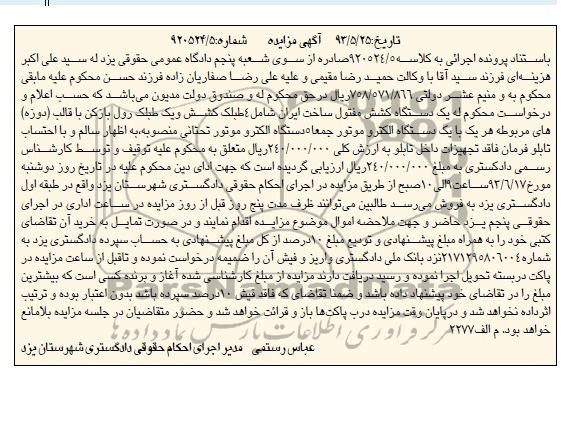 تاریخ:۹۳/۵/۲۵ آگهی مزایده شماره:۹۲۰۵۲۴/۵
باستناد پرونده اجرائی به کلاسه ۹۲۰۵۲۴/۵صادره از سوی شعبه پنجم دادگاه عمومی حقوقی یزد له سید علی اکبر
هزینه‌ای فرزند سید آقا با وکالت حمید رضا مقیمی و علیه علی رضا صفاریان زاده فرزند حسن محکوم علیه مابقی
محکوم به و منیم عشر دولتی ۷۵۸/۵۷۱/۸۶۶ریال درحق محکوم له و صندوق دولت مدیون می‌باشد که حسب اعلام و
درخواست محکوم له یک دستگاه کشش مفتول ساخت ایران شامل ۴طبلک کشش ویک طبلک رول بازکن با قالب (دوزه)
های مربوطه هر یک با یک دستگاه الکترو موتور جمعا۵دستگاه الکترو موتور تحتانی منصوبه،به اظهار سالم و با احتساب
تابلو فرمان فاقد تجهیزات داخل تابلو به ارزش کلی ۲۴۰/۰۰۰/۰۰۰ریال متعلق به محکوم علیه توقیف و توسط کارشناس
رسمی دادگستری به مبلغ ۲۴۰/۰۰۰/۰۰۰ریال ارزیابی گردیده است که جهت ادای دین محکوم علیه در تاریخ روز دوشنبه
مورخ۹۳/۶/۱۷ساعت۹الی۱۰صبح از طریق مزایده در اجرای احکام حقوقی دادگستری شهرستان یزد واقع در طبقه اول
دادگستری یزد به فروش می‌رسد طالبین می‌توانند ظرف مدت پنج روز قبل از روز مزایده در ساعت اداری در اجرای
حقوقی پنجم یزد حاضر و جهت ملاحضه اموال موضوع مزایده اقدام نمایند و در صورت تمایل به خرید آن تقاضای
کتبی خود را به همراه مبلغ پیشنهادی و تودیع مبلغ ۱۰درصد از کل مبلغ پیشنهادی به حساب سپرده دادگستری یزد به
شماره ۲۱۷۱۲۹۵۸۰۶۰۰۴نزد بانک ملی دادگستری واریز و فیش آن را ضمیمه درخواست نموده و تاقبل از ساعت مزایده در
پاکت دربسته تحویل اجرا نموده و رسید دریافت دارند مزایده از مبلغ کارشناسی شده آغاز و برنده کسی است که بیشترین
مبلغ را در تقاضای خود پیشنهاد داده باشد و ضمنا تقاضای که فاقد فیش ۱۰درصد سپرده باشد بدون اعتبار بوده و ترتیب
اثر داده نخواهد شد و درپایان وقت مزایده درب پاکت‌ها باز و قرائت خواهد شد و حضور متقاضیان در جلسه مزایده بلامانع
خواهد بود. م الف۲۲۷۷
عباس رستمی مدیر اجرای احکام حقوقی دادگستری شهرستان یزد
ParsNamadData
مرکز فرآوری اطلاعات پارس نماد داده‌ها